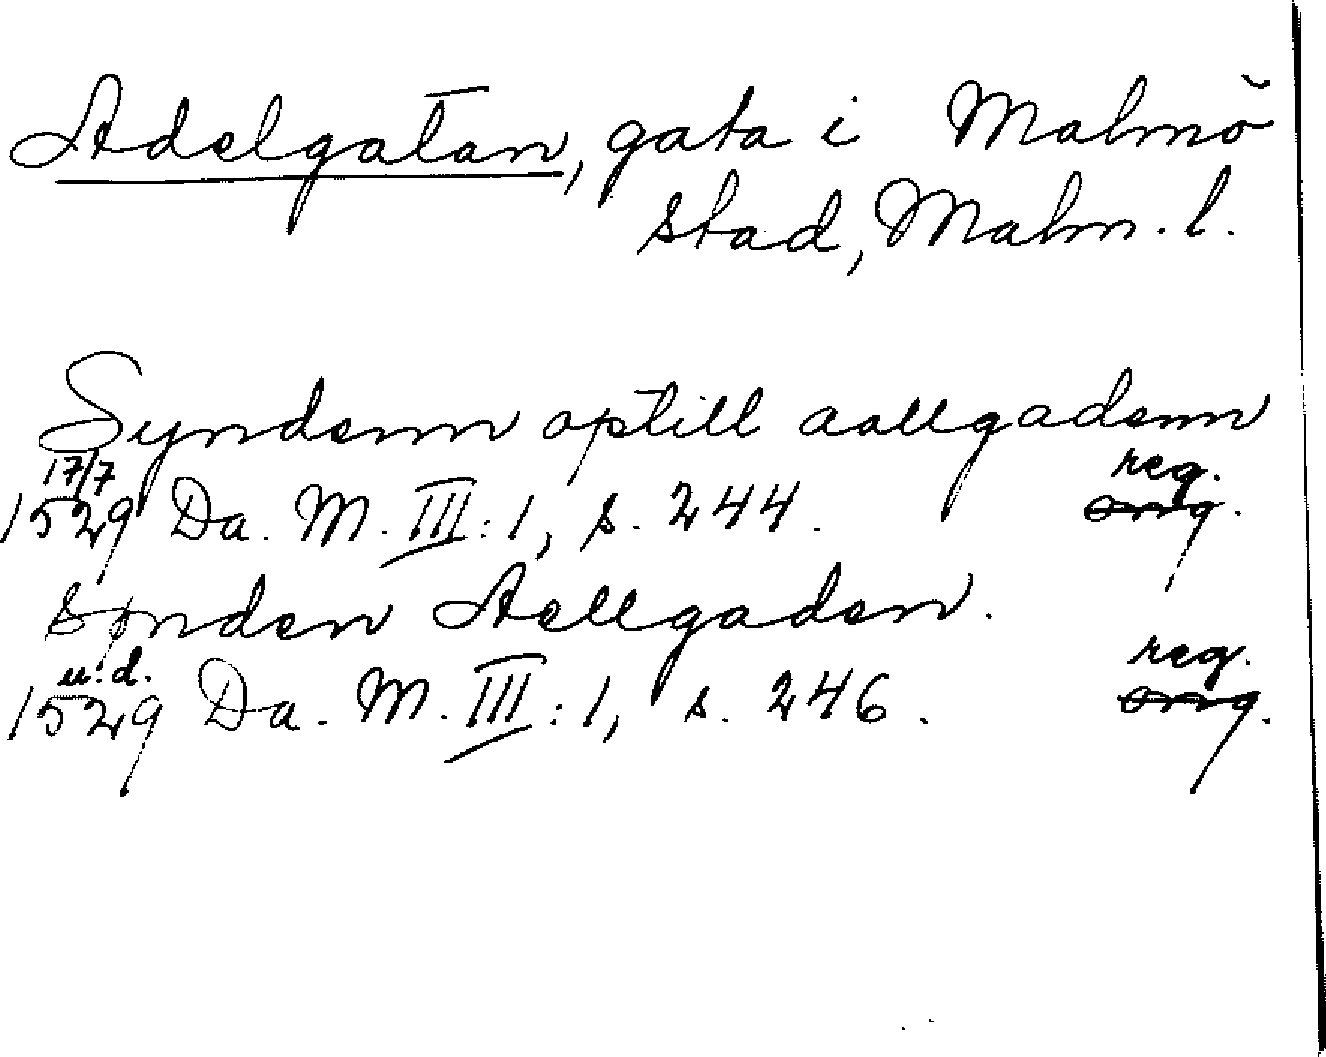 Adelgatan, gata i Malmö
stad, Malm. l.
Syndenn optill aallgadenn
17/7 reg.
1529 Da. M. III:1, s. 244. orig.
synden Aellgaden.
u.d. reg.
1529 Da. M. III:1, s. 246. orig.